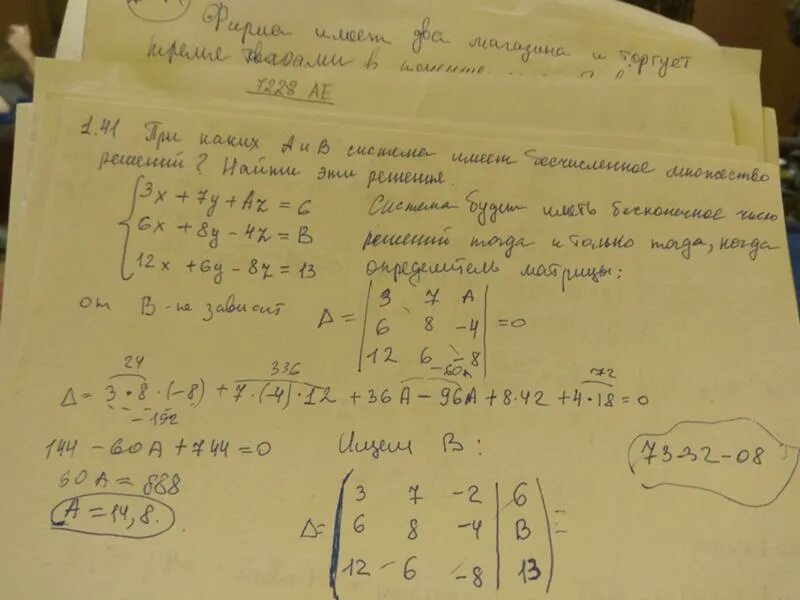 Фирма имеет два магазина и торгует
тремя
в
7228 АЕ
1.41 При каких А и В система имеет бесчисленное множество
решений? Найти эти решенье.
3x + 7y + Az = 6
6x + 8y - 4z = B
12x + 6y - 8z = 13
Система будет иметь бесконечное число
решений тогда и только тогда, когда
определитель матрицы:
от В - не зависит
Δ = | 3 7 A |
| 6 8 -4 | = 0
| 12 6 -8 |
24 336 -60A 72
Δ = 3·8·(-8) + 7·(-4)·12 + 36A - 96A + 8·42 + 4·18 = 0
-192
144 - 60A + 744 = 0
60A = 888
A = 14,8.
Ищем В:
73-32-08
Δ = ( 3 7 -2 | 6 )
6 8 -4 | B =
12 - 6 -8 | 13